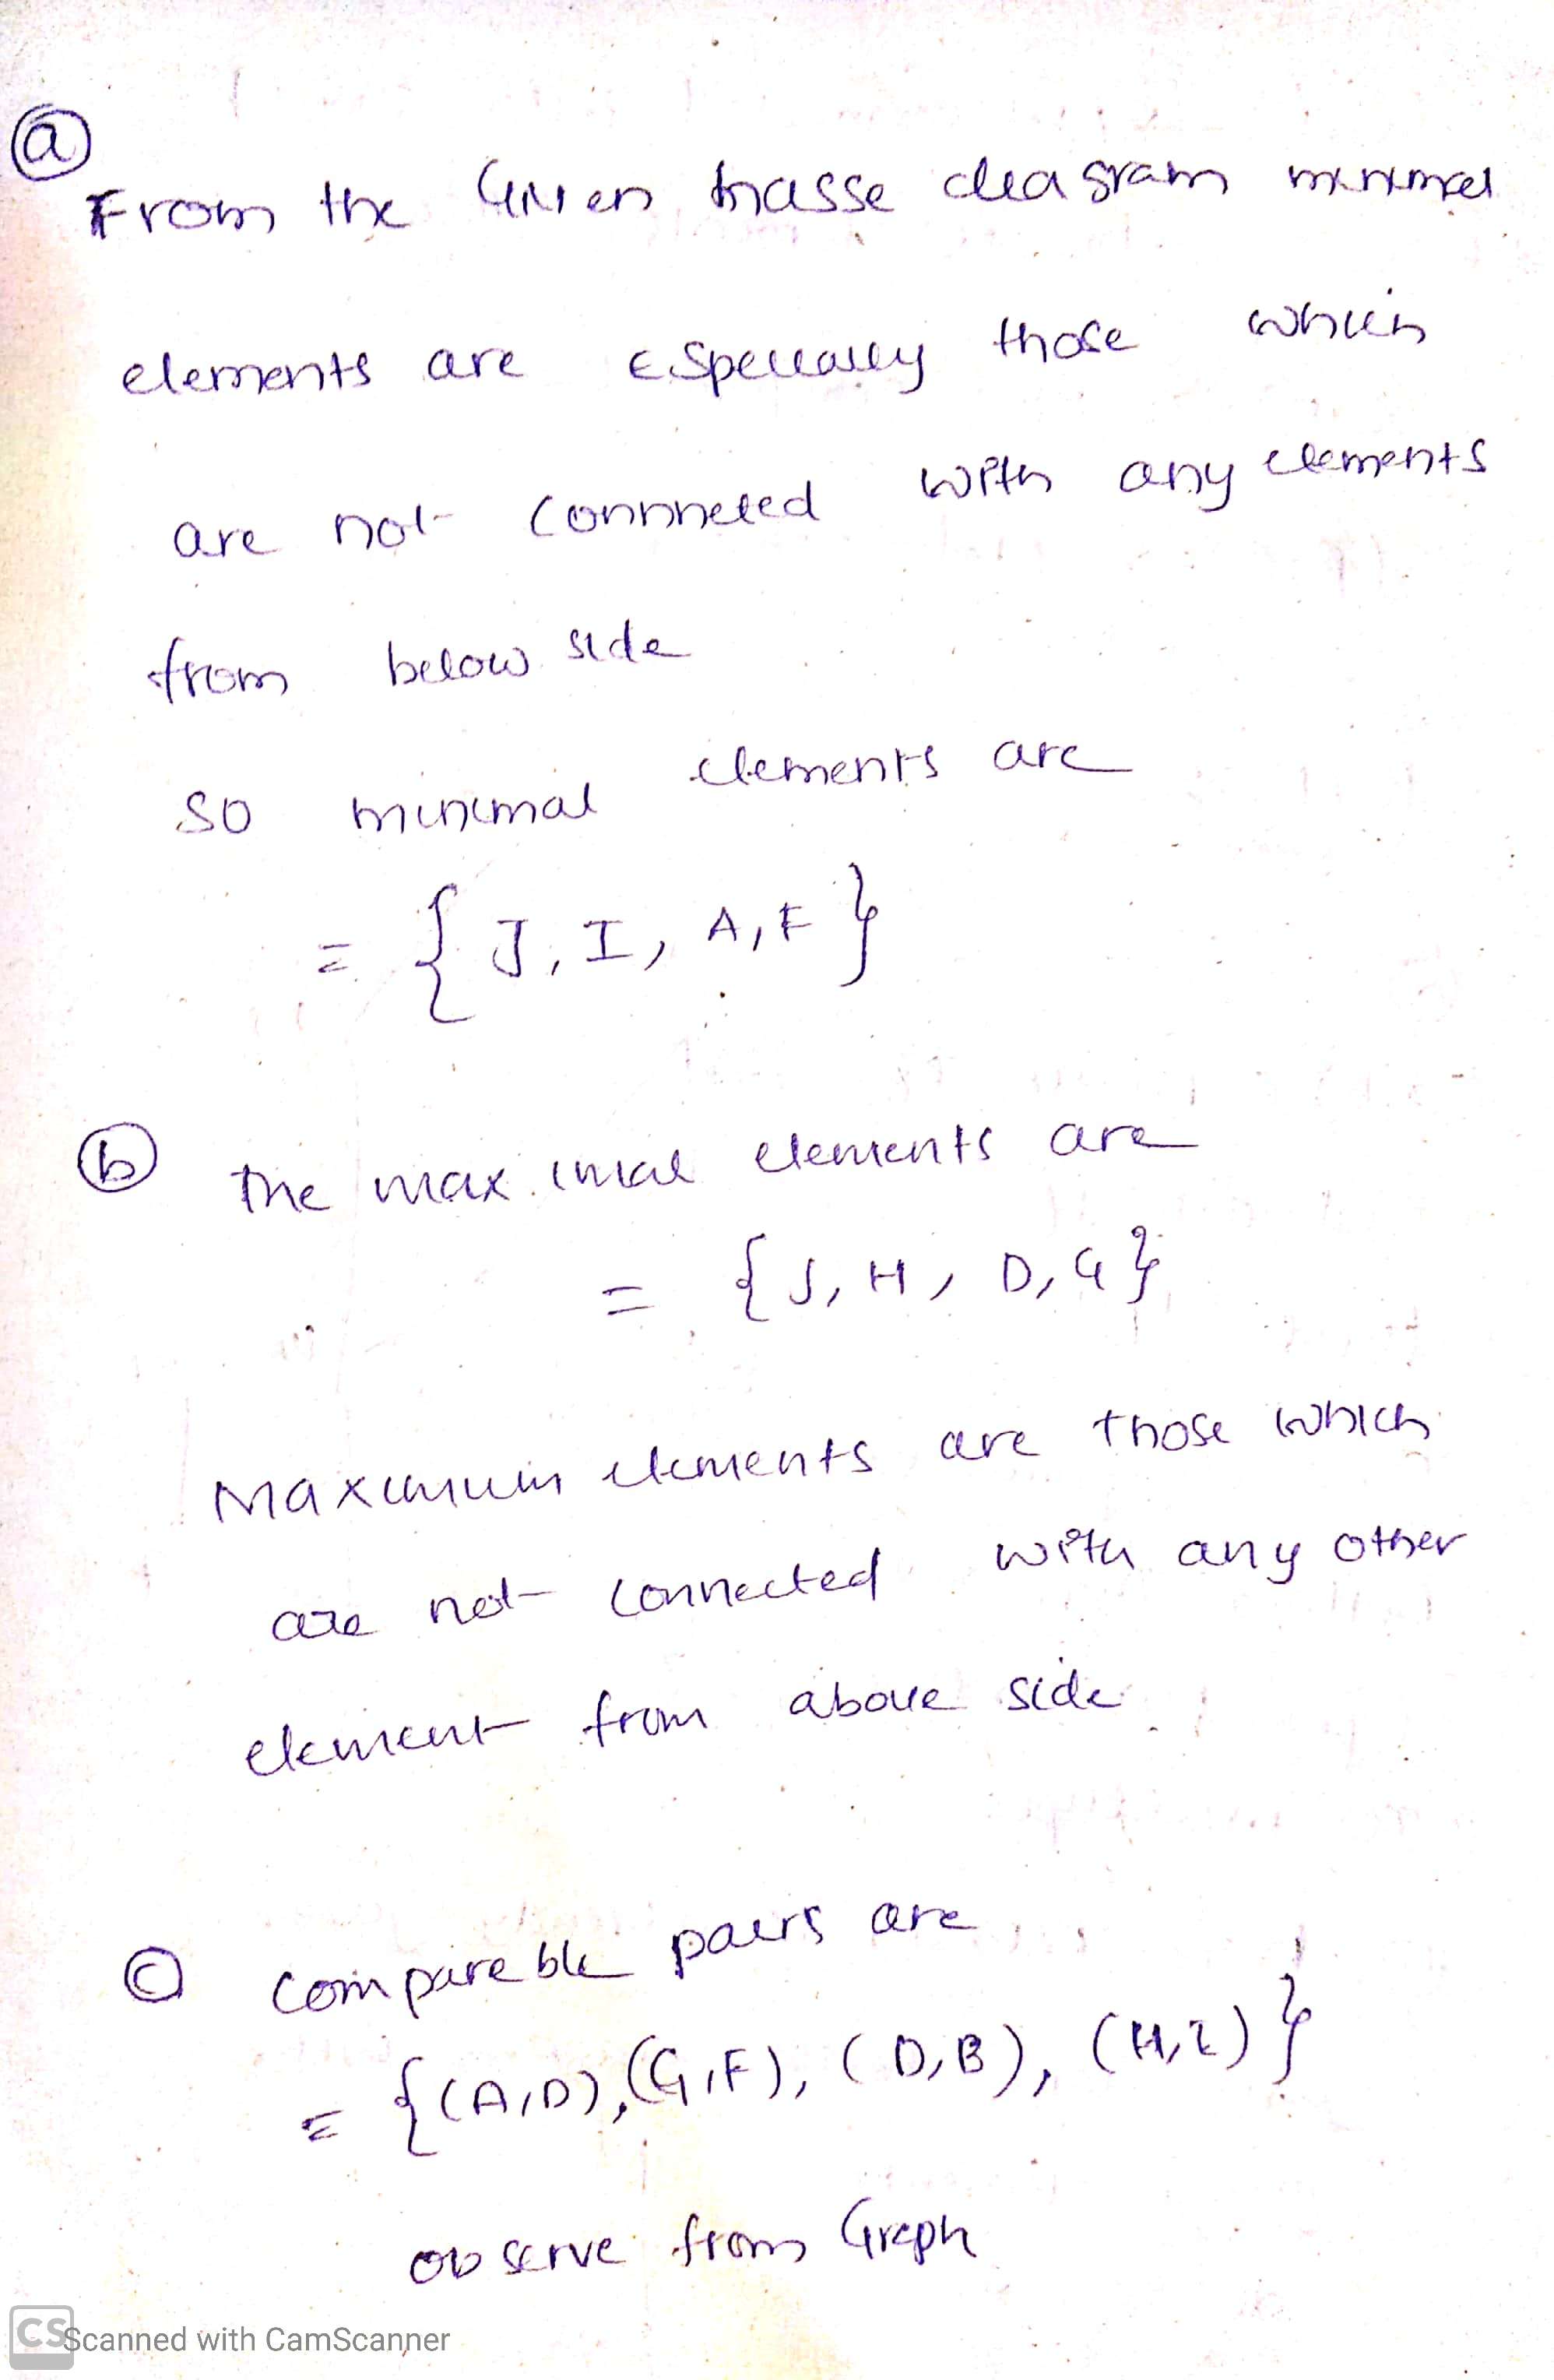 ⓐ
From the Given hasse diagram minimal
elements are especially those which
are not connneted with any elements
from below side
so minimal elements are
= { J, I, A, F }
ⓑ The maximal elements are
= { J, H, D, G }
Maximum elements are those which
are not connected with any other
element from above side
ⓒ compareble pairs are
= { (A,D), (G,F), (D,B), (H,I) }
observe from Graph
CS Scanned with CamScanner